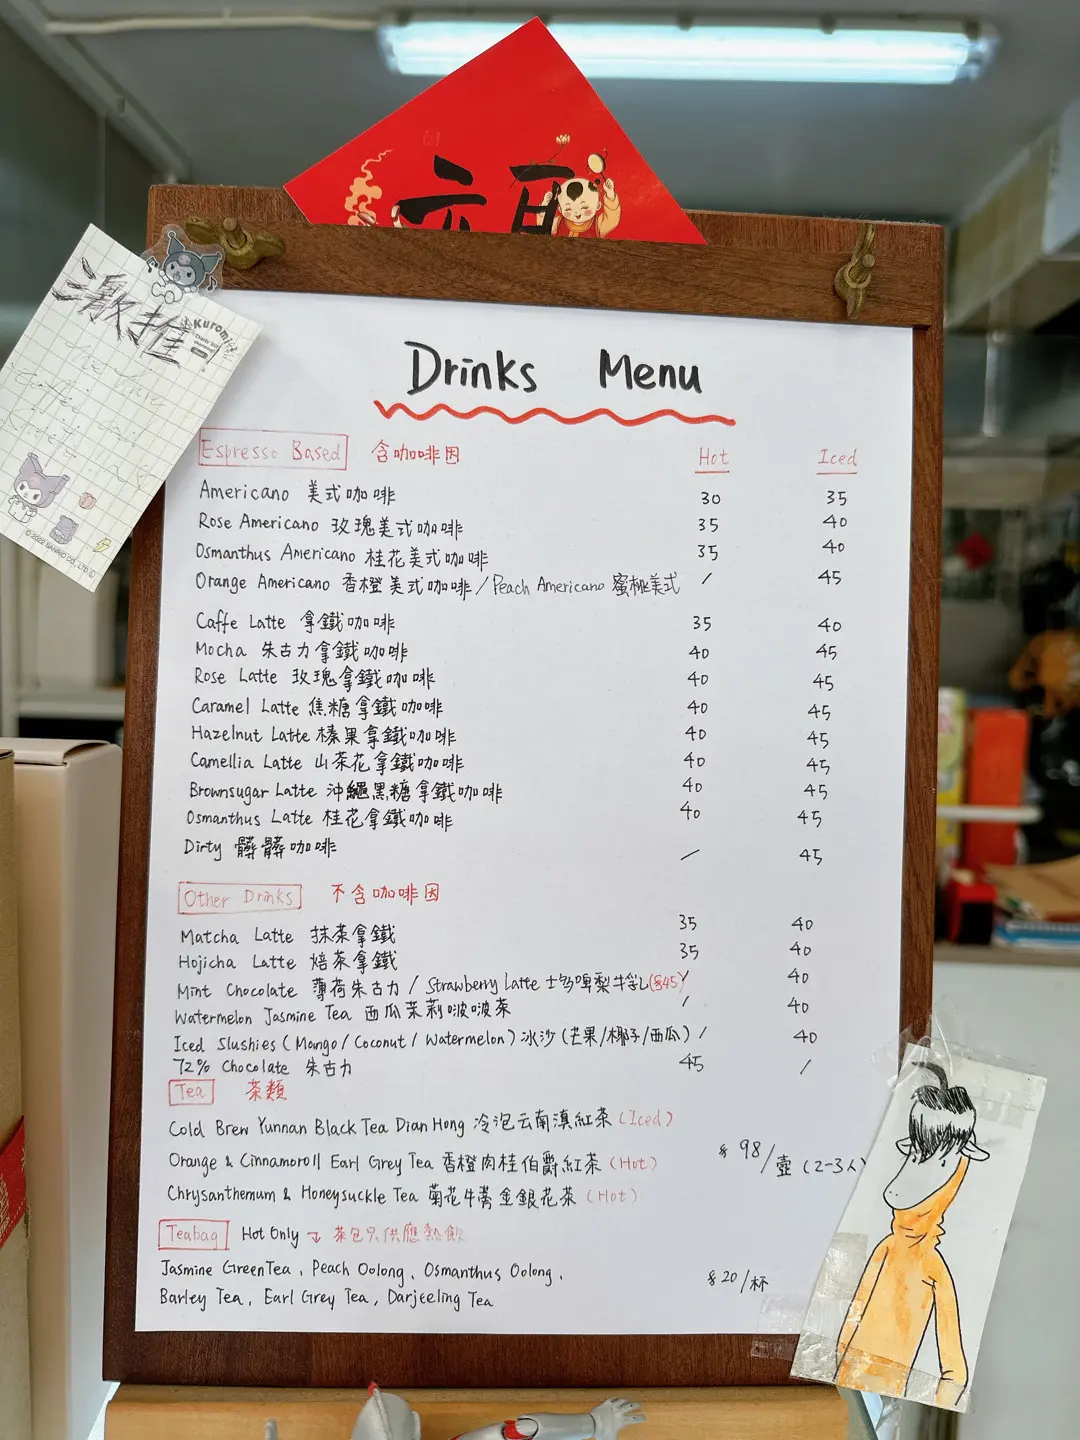 激推
Kuromi
©2022 SANRIO CO., LTD.
Drinks Menu
Espresso Based 含咖啡因 Hot Iced
Americano 美式咖啡 30 35
Rose Americano 玫瑰美式咖啡 35 40
Osmanthus Americano 桂花美式咖啡 35 40
Orange Americano 香橙美式咖啡 / Peach Americano 蜜桃美式 / 45
Caffe Latte 拿鐵咖啡 35 40
Mocha 朱古力拿鐵咖啡 40 45
Rose Latte 玫瑰拿鐵咖啡 40 45
Caramel Latte 焦糖拿鐵咖啡 40 45
Hazelnut Latte 榛果拿鐵咖啡 40 45
Camellia Latte 山茶花拿鐵咖啡 40 45
Brownsugar Latte 沖繩黑糖拿鐵咖啡 40 45
Osmanthus Latte 桂花拿鐵咖啡 40 45
Dirty 髒髒咖啡 / 45
Other Drinks 不含咖啡因
Matcha Latte 抹茶拿鐵 35 40
Hojicha Latte 焙茶拿鐵 35 40
Mint Chocolate 薄荷朱古力 / Strawberry Latte 士多啤梨牛乳($45) / 40
Watermelon Jasmine Tea 西瓜茉莉啵啵茶 / 40
Iced Slushies (Mango / Coconut / Watermelon) 冰沙 (芒果/椰子/西瓜) / 40
72% Chocolate 朱古力 45 /
Tea 茶類
Cold Brew Yunnan Black Tea Dian Hong 冷泡云南滇紅茶 (Iced)
Orange & Cinnamoroll Earl Grey Tea 香橙肉桂伯爵紅茶 (Hot) $98/壺 (2-3人)
Chrysanthemum & Honeysuckle Tea 菊花牛蒡金銀花茶 (Hot)
Teabag Hot Only 茶包只供應熱飲
Jasmine Green Tea, Peach Oolong, Osmanthus Oolong, $20/杯
Barley Tea, Earl Grey Tea, Darjeeling Tea